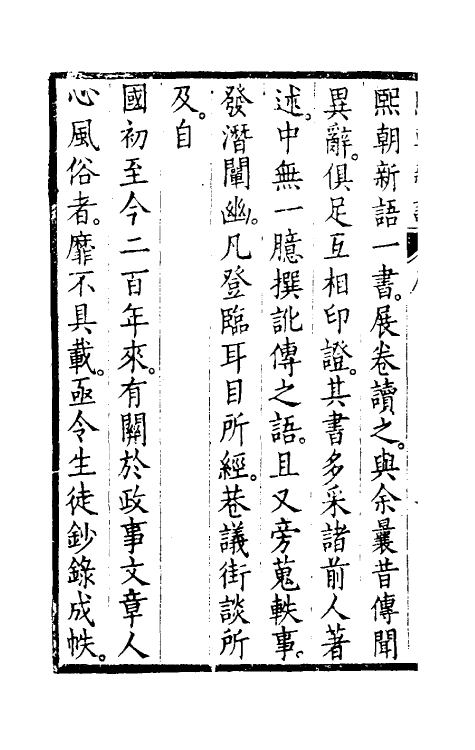 熙朝新語一書。展卷讀之。與余曩昔傳聞
異辭。俱足互相印證。其書多采諸前人著
述。中無一臆撰訛傳之語。且又旁蒐軼事。
發潛闡幽。凡登臨耳目所經。巷議街談所
及。自
國初至今二百年來。有關於政事文章人
心風俗者。靡不具載。亟令生徒鈔錄成帙。